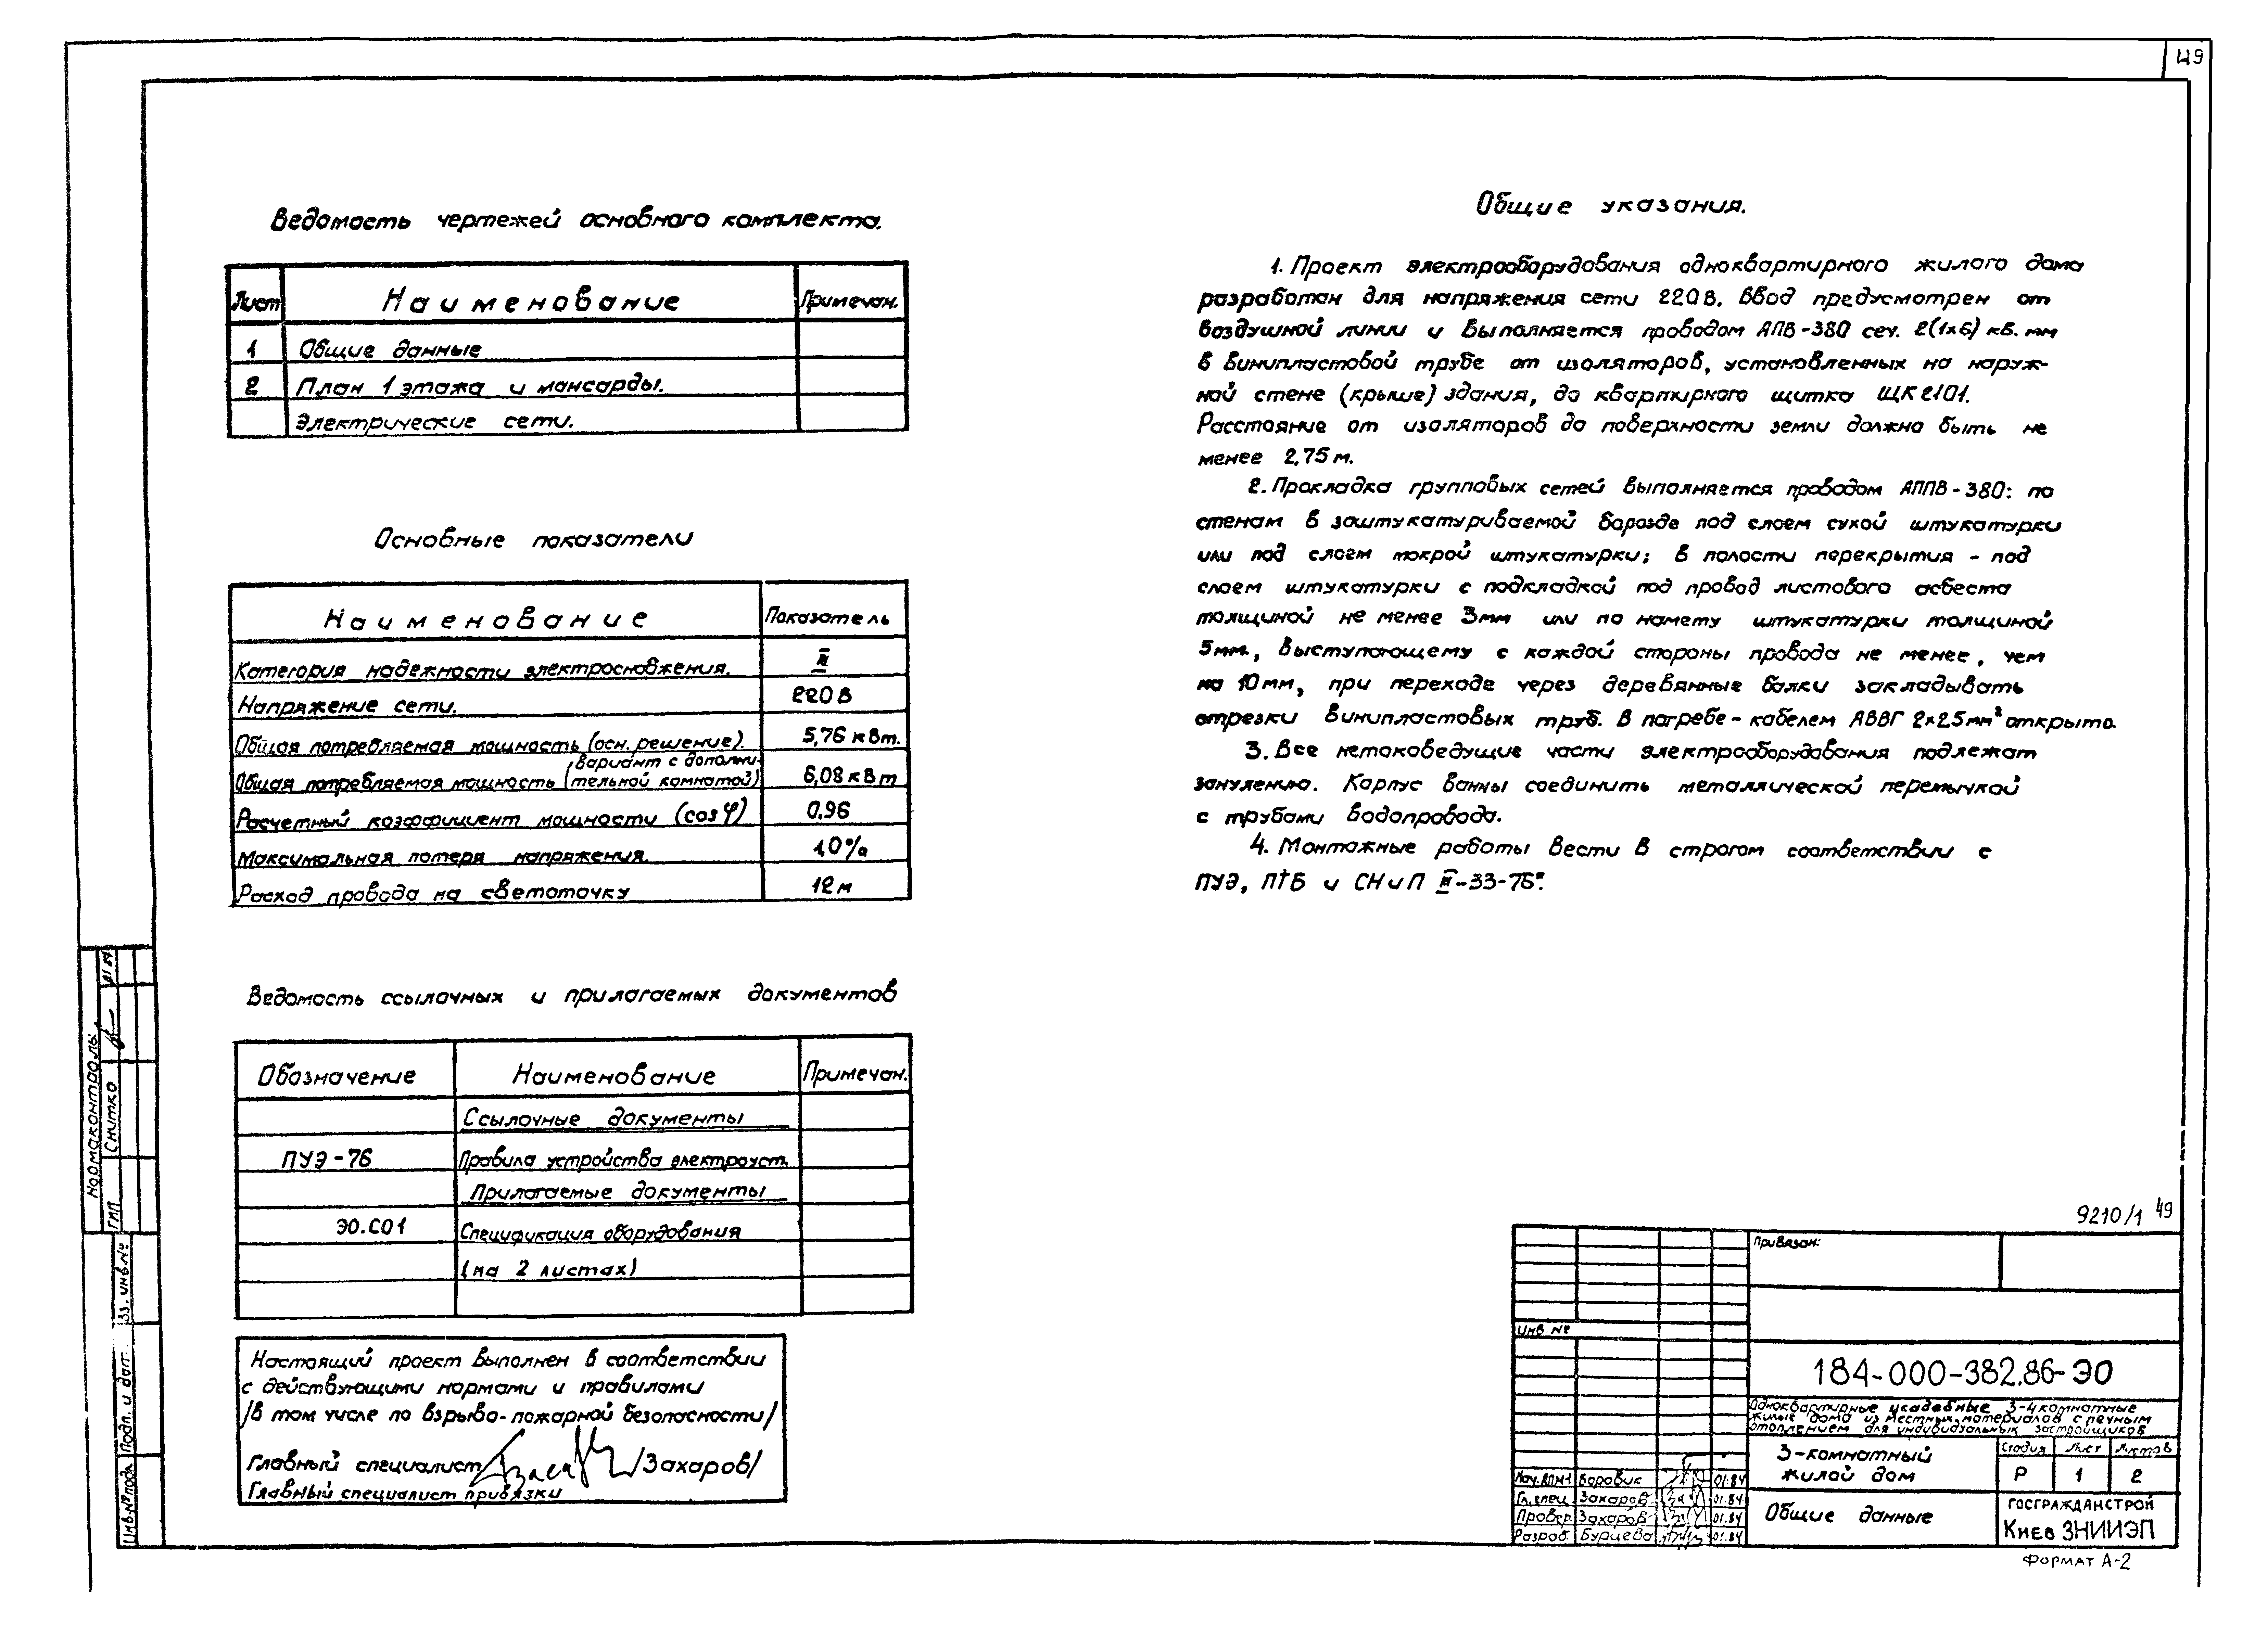 49
Ведомость чертежей основного комплекта.
Лист Наименование Примечан.
1 Общие данные
2 План 1 этажа и мансарды.
Электрические сети.
Основные показатели
Наименование Показатель
Категория надежности электроснабжения. III
Напряжение сети. 220 В
Общая потребляемая мощность (осн. решение). 5,76 кВт.
Общая потребляемая мощность (вариант с дополни-
тельной комнатой) 6,08 кВт
Расчетный коэффициент мощности (cos φ) 0,96
Максимальная потеря напряжения. 1,0%
Расход провода на светоточку 12 м
Ведомость ссылочных и прилагаемых документов
Обозначение Наименование Примечан.
Ссылочные документы
ПУЭ-76 Правила устройства электроуст.
Прилагаемые документы
ЭО.СО1 Спецификация оборудования
(на 2 листах)
Настоящий проект выполнен в соответствии
с действующими нормами и правилами
/в том числе по взрыво-пожарной безопасности/
Главный специалист /Захаров/
Главный специалист привязки
Общие указания.
1. Проект электрооборудования одноквартирного жилого дома
разработан для напряжения сети 220 В. Ввод предусмотрен от
воздушной линии и выполняется проводом АПВ-380 сеч. 2(1х6) кв. мм
в винипластовой трубе от изоляторов, установленных на наруж-
ной стене (крыше) здания, до квартирного щитка ЩК 2101.
Расстояние от изоляторов до поверхности земли должно быть не
менее 2,75 м.
2. Прокладка групповых сетей выполняется проводом АППВ-380: по
стенам в заштукатуриваемой борозде под слоем сухой штукатурки
или под слоем мокрой штукатурки; в полости перекрытия - под
слоем штукатурки с подкладкой под провод листового асбеста
толщиной не менее 3мм или по намету штукатурки толщиной
5мм., выступающему с каждой стороны провода не менее, чем
на 10мм, при переходе через деревянные балки закладывать
отрезки винипластовых труб. В погребе - кабелем АВВГ 2х2.5мм² открыто.
3. Все нетоковедущие части электрооборудования подлежат
занулению. Корпус ванны соединить металлической перемычкой
с трубами водопровода.
4. Монтажные работы вести в строгом соответствии с
ПУЭ, ПТБ и СНиП III-33-76*.
Нормоконтроль:
ГИП Снитко
Вз. инв.№
Подп. и дат.
Инв.№ подл.
9210/1 49
Привязан:
Инв. №
184-000-382.86-ЭО
Одноквартирные усадебные 3-4комнатные
жилые дома из местных материалов с печным
отоплением для индивидуальных застройщиков
3-комнатный
жилой дом
Стадия Лист Листов
Р 1 2
Нач.АПМ1 Боровик 01.84
Гл. спец. Захаров 01.84
Провер. Захаров 01.84
Разраб. Бурцева 01.84
Общие данные
ГОСГРАЖДАНСТРОЙ
Киев ЗНИИЭП
Формат А-2